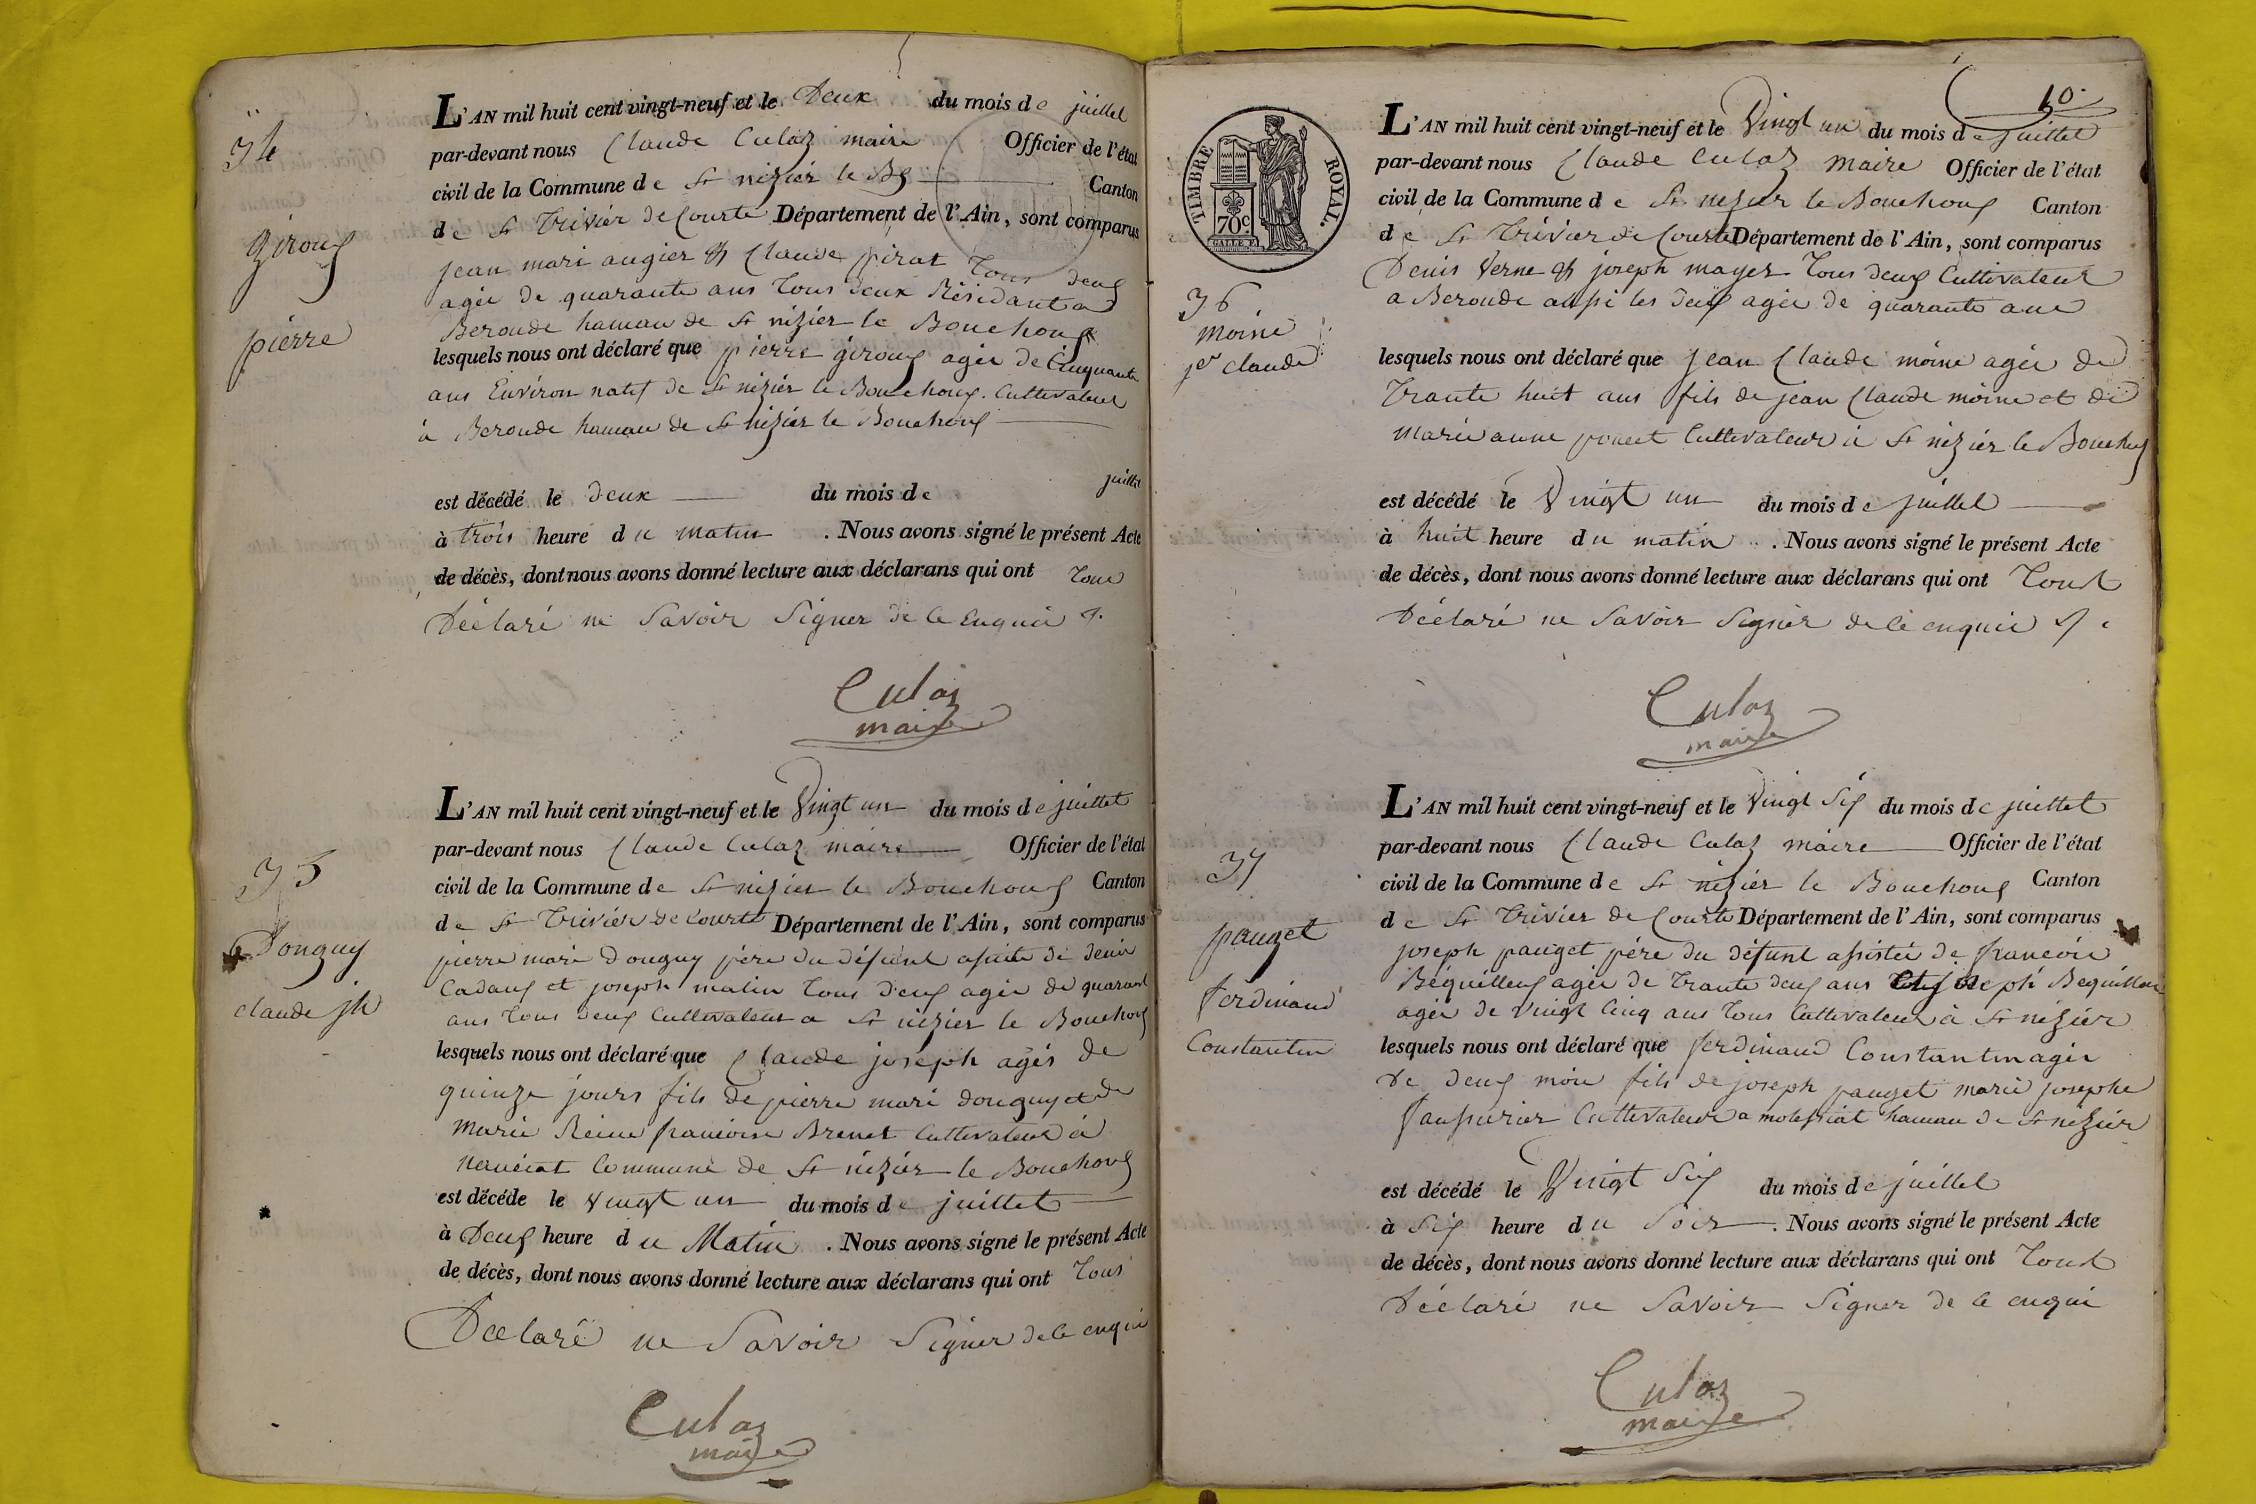 34
giroux
pierre
L'AN mil huit cent vingt-neuf et le Deux du mois de juillet
par-devant nous Claude Culaz maire Officier de l'état
civil de la Commune de St nizier le B Canton
de St Trivier de Courte Département de l'Ain, sont comparus
jean mari augier et Claude pirat Tous deux
agée de quarante ans Tous deux Résidant a
Beroude hamau de St nizier le Bouchoux
lesquels nous ont déclaré que pierre giroux agée de Cinquante
ans Environ natif de St nizier le Bouchoux. Cultivateur
à Beroude hamau de St nizier le Bouchoux
est décédé le deux du mois de juillet
à trois heure du matin . Nous avons signé le présent Acte
de décès, dont nous avons donné lecture aux déclarans qui ont Tous
Déclaré ne Savoir Signer de ce Enquie
Culaz
maire
35
Donguy
claude jh
L'AN mil huit cent vingt-neuf et le Vingt un du mois de juillet
par-devant nous Claude Culaz maire Officier de l'état
civil de la Commune de St nizier le Bouchoux Canton
de St Trivier de Courte Département de l'Ain, sont comparus
pierre mari Donguy père du défunt de denis
Cadoux et joseph matin Tous deux agée de quarant
ans Tous deux Cultivateur a St nizier le Bouchoux
lesquels nous ont déclaré que Claude joseph agés de
quinze jours fils de pierre mari donguy et de
Marie Reine francoise Brenet Cultivateur à
Commune de St nizier le Bouchoux
est décéde le vingt un du mois de juillet
à Deux heure du Matin . Nous avons signé le présent Acte
de décès, dont nous avons donné lecture aux déclarans qui ont Tous
Déclaré ne Savoir Signer de ce enquie
Culaz
maire
10.
TIMBRE ROYAL.
70c
36
moine
jn claude
L'AN mil huit cent vingt-neuf et le Vingt un du mois de juillet
par-devant nous Claude Culaz maire Officier de l'état
civil de la Commune de St nizier le Bouchoux Canton
de St Trivier de Courte Département de l'Ain, sont comparus
Denis Verne et joseph mayer Tous deux Cultivateur
a Beroude aussi les deux agée de quarante ans
lesquels nous ont déclaré que jean Claude moine agée de
Trante huit ans fils de jean Claude moine et de
Marie anne poncet Cultivateur à St nizier le Bouchoux
est décédé le Vingt un du mois de juillet
à huit heure du matin . Nous avons signé le présent Acte
de décès, dont nous avons donné lecture aux déclarans qui ont Tout
Déclaré ne Savoir Signér de ce enquie
Culaz
maire
37
pauget
ferdinand
Constantin
L'AN mil huit cent vingt-neuf et le Vingt Six du mois de juillet
par-devant nous Claude Culaz maire Officier de l'état
civil de la Commune de St nizier le Bouchoux Canton
de St Trivier de Courte Département de l'Ain, sont comparus
joseph pauget père du défunt assistée de francois
Béquilleux agée de Trante deux ans et joseph Bequilleux
agée de Vingt Cinq ans Tous Cultivateur à St nizier
lesquels nous ont déclaré que ferdinand Constantin agée
de deux mois fils de joseph pauget marie josephe
Cultivateur a molessiat hamau de St nizier
est décédé le Vingt Six du mois de juillet
à Six heure du Soir . Nous avons signé le présent Acte
de décès, dont nous avons donné lecture aux déclarans qui ont Tout
Déclaré ne Savoir Signer de ce enquie
Culaz
maire